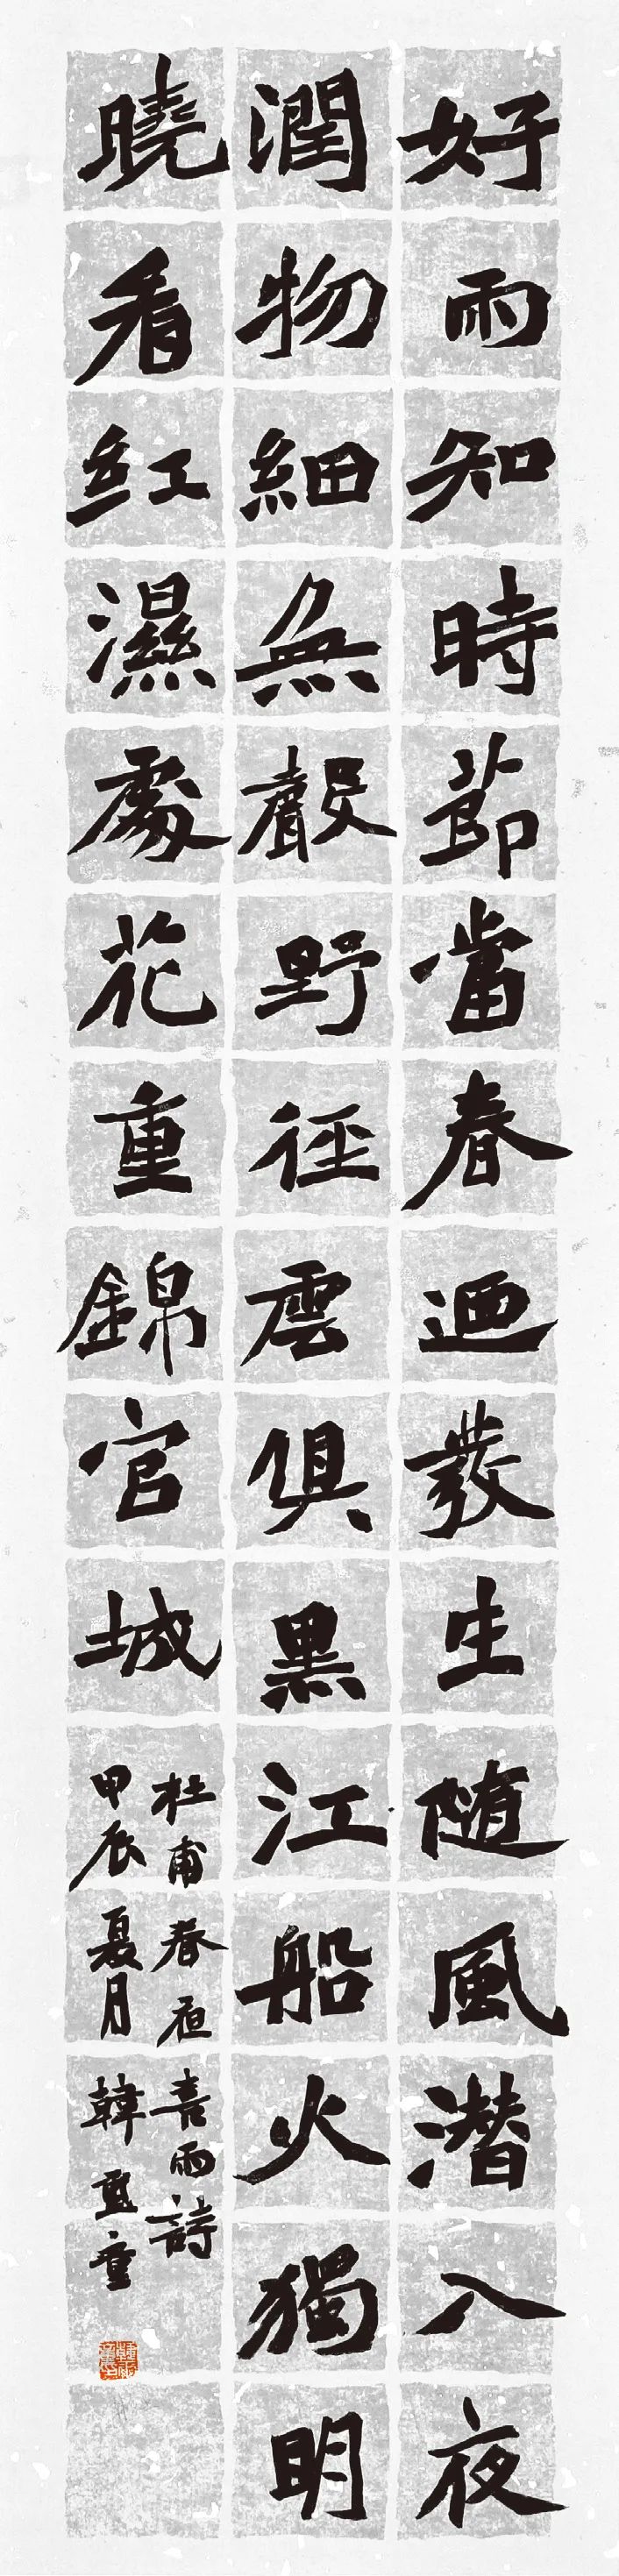 好雨知時節當春迺發生随風潛入夜
潤物細無聲野徑雲俱黑江船火獨明
曉看紅濕處花重錦官城
杜甫春夜喜雨詩
甲辰夏月韓